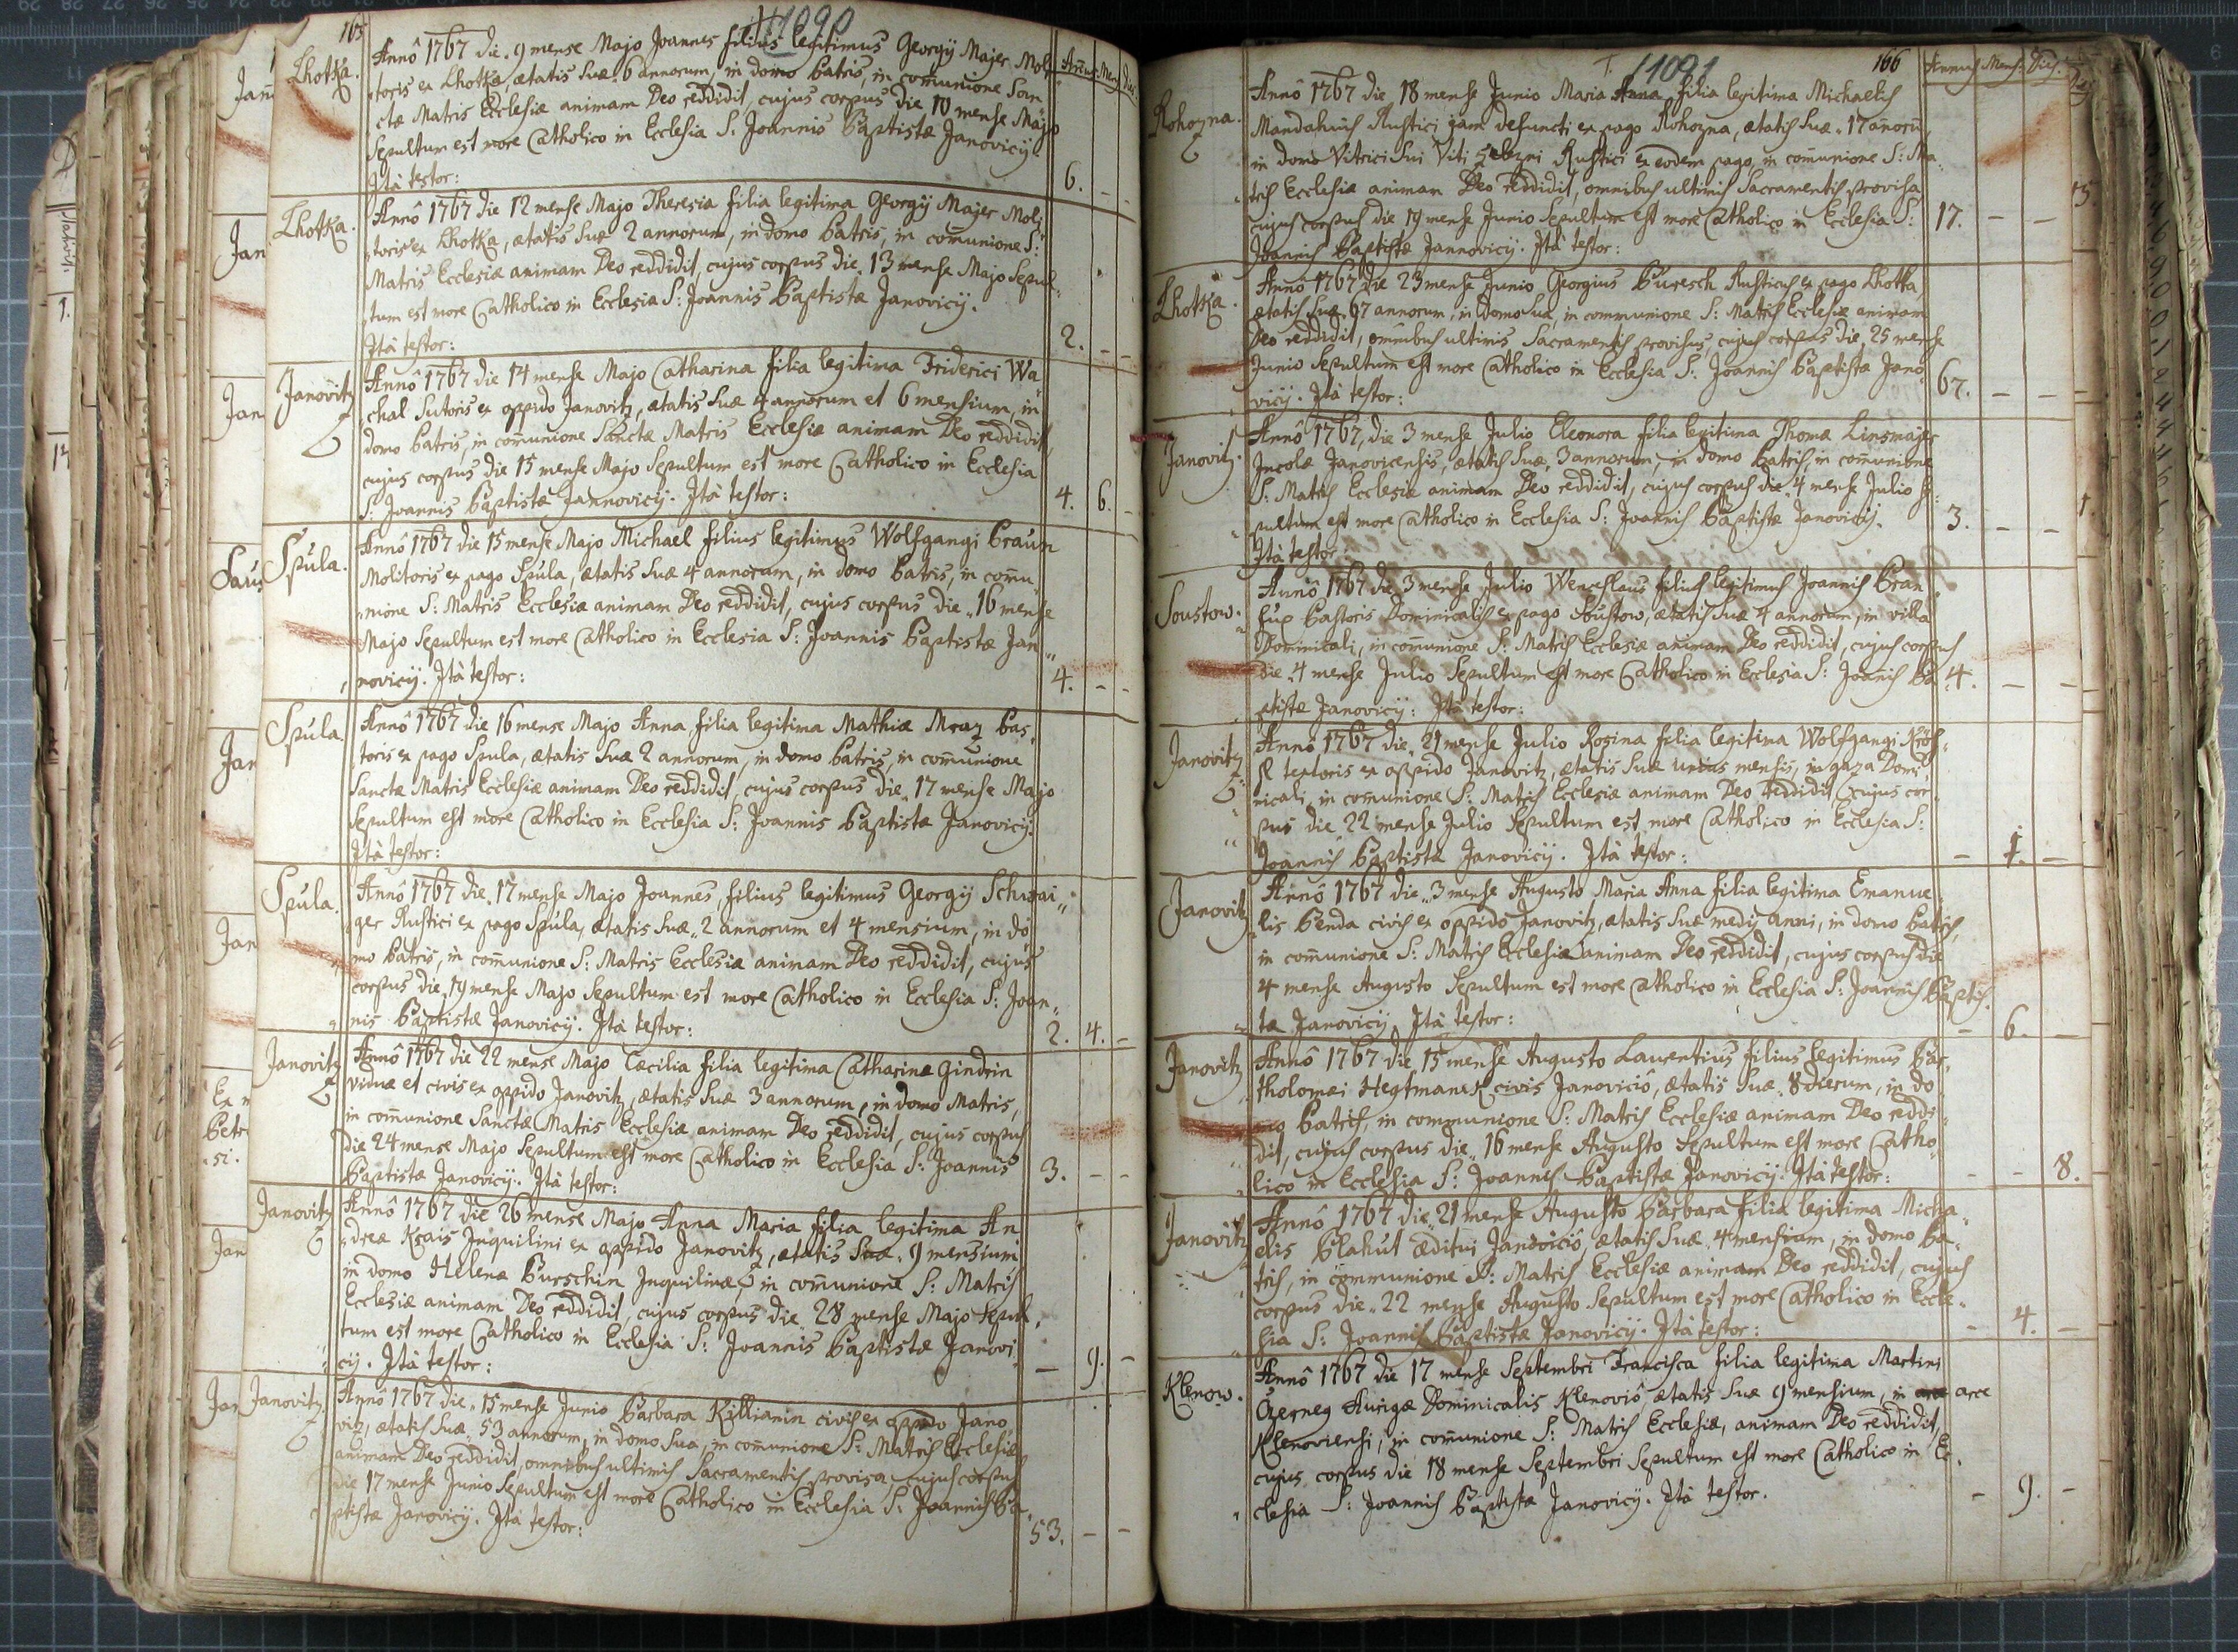 165
11090
Annus Mens. Dies.
Lhotka.
Annô 1767 die. 9 mense Majo Joannes filius legitimus Georgij Majer Moli
toris ex Lhotka, ætatis suæ. 6 annorum, in domo Patris, in communione San
ctæ Matris Ecclesiæ animam Deo reddidit, cujus corpus die 10 mense Majo
Sepultum est more Catholico in Ecclesia S. Joannis Baptistæ Janovicij.
Ità testor:
6. - -
Lhotka.
Annô 1767 die 12 mense Majo Theresia filia legitima Georgij Majer Moli
toris ex Lhotka, ætatis Suæ 2 annorum, in domo Patris, in com̄unione S:
Matris Ecclesiæ animam Deo reddidit, cujus corpus die. 13 mense Majo Sepul„
tum est more Catholico in Ecclesia S: Joannis Baptistæ Janovicij.
Ità testor:
2. - -
Janovitz
Annô 1767 die 14 mense Majo Catharina filia legitima Friderici Wa
chal Sutoris ex oppido Janovitz, ætatis Suæ 4 annorum et 6 mensium, in
domo Patris, in com̄unione Sanctæ Matris Ecclesiæ animam Deo reddidit,
cujus corpus die 15 mense Majo Sepultum est more Catholico in Ecclesia
S: Joannis Baptistæ Jannovicij. Ità testor:
4. 6. -
Spùla.
Annô 1767 die 15 mense Majo Michael filius legitimus Wolfgangi Braun
Molitoris ex pago Spùla, ætatis Suæ 4 annorum, in domo Patris, in com̄u„
nione S: Matris Ecclesiæ animam Deo reddidit, cujus corpus die „16 mense
Majo Sepultum est more Catholico in Ecclesia S: Joannis Baptistæ Jan„
novicij. Ità testor:
4. - -
Spùla.
Annô 1767 die 16 mense Majo Anna filia legitima Mathiæ Mraz Pas„
toris ex pago Spula, ætatis Suæ 2 annorum, in domo Patris, in com̄unione
Sanctæ Matris Ecclesiæ animam Deo reddidit, cujus corpus die „17 mense Majo
Sepultum est more Catholico in Ecclesia S: Joannis Baptistæ Janovicij.
Ità testor:
Spùla.
Annô 1767 die. 17 mense Majo Joannes filius legitimus Georgij Schwai„
ger Rustici ex pago Spùla, ætatis Suæ„ 2 annorum et 4 mensium, in do
mo Patris, in com̄unione S: Matris Ecclesiæ animam Deo reddidit, cujus
corpus die 19 mense Majo Sepultum est more Catholico in Ecclesia S: Joan„
nis Baptistæ Janovicij. Ità testor:
2. 4. -
Janovitz
Annô 1767 die 22 mense Majo Cæcilia filia legitima Catharinæ Gindrin
viduæ et civis ex oppido Janovitz, ætatis Suæ 3 annorum, in domo Matris,
in com̄unione Sanctæ Matris Ecclesiæ animam Deo reddidit, cujus corpus
die 24 mense Majo Sepultum est more Catholico in Ecclesia S: Joannis
Baptistæ Janovicij. Ità testor:
3. - -
Janovitz
Annô 1767 die 26 mense Majo Anna Maria filia legitima An
dreæ Krais Inquilini ex oppido Janovitz, ætatis Suæ. 9 mensium
in domo Helenæ Purschin Inquilinæ, in com̄unione S: Matris
Ecclesiæ animam Deo reddidit, cujus corpus die. 28 mense Majo Sepul„
tum est more Catholico in Ecclesia S: Joannis Baptistæ Janovi
cij. Ità testor:
- 9. -
Janovitz.
Annô 1767 die„ 15 mense Junio Barbara Killianin civis ex oppido Jano
vitz, ætatis Suæ„ 53 annorum, in domo Sua, in com̄unione S: Matris Ecclesiæ
animam Deo reddidit, omnibus ultimis Sacramentis provisa, cujus corpus
die 17 mense Junio Sepultum est more Catholico in Ecclesia S. Joannis Ba„
ptistæ Janovicij. Ità testor:
53. - -
11091
166
Annus Mens. Dies.
Rohozna.
Annô 1767 die 18 mense Junio Maria Anna filia legitima Michaelis
Rustici jam defuncti ex pago Rohozna, ætatis Suæ„ 17 annorū
in domo Vitrici Sui Viti Rustici ex eodem pago, in com̄unione S: Ma„
tris Ecclesiæ animam Deo reddidit, omnibus ultimis Sacramentis provisa
cujus corpus die 19 mense Junio Sepultum est more Catholico in Ecclesia S:
Joannis Baptistæ Jannovicij. Ità testor:
17. - -
Lhotka.
Annô 1767 die 23 mense Junio Georgius Buresch Rusticus ex pago Lhotka,
ætatis Suæ. 67 annorum, in domo Sua, in communione S: Matris Ecclesiæ animam
Deo reddidit, om̄ibus ultimis Sacramentis provisus, cujus corpus die 25 mense
Junio Sepultum est more Catholico in Ecclesia S: Joannis Baptistæ Jano
vicij. Ità testor:
67. - -
Janovitz.
Annô 1767, die 3 mense Julio Eleonora filia legitima Thomæ Linsmajer
Incolæ Janovicensis, ætatis Suæ. 3 annorum, in domo Patris, in com̄unione
S: Matris Ecclesiæ animam Deo reddidit, cujus corpus die „4 mense Julio Se
pultum est more Catholico in Ecclesia S: Joannis Baptistæ Janovicij.
Ità testor:
3. - -
Soustow.
Annô 1767 die 3 mense Julio Wenceslaus filius legitimus Joannis Bran„
Pastoris Dominicalis ex pago Soustow, ætatis Suæ 4 annorum, in villa
Dominicali, in com̄unione S: Matris Ecclesiæ animam Deo reddidit, cujus corpus
die 4 mense Julio Sepultum est more Catholico in Ecclesia S: Joannis Ba
ptistæ Janovicij: Ità testor:
4. - -
Janovitz
Annô 1767 die„ 21 mense Julio Rosina filia legitima Wolfgangi
textoris ex oppido Janovitz, ætatis Suæ unius mensis, in gaza Domi
nicali, in com̄unione S: Matris Ecclesiæ animam Deo reddidit, cujus cor„
pus die„ 22 mense Julio Sepultum est more Catholico in Ecclesia S:
Joannis Baptistæ Janovicij. Ità testor:
- 1. -
Janovitz
Annô 1767 die „3 mense Augusto Maria Anna filia legitima Emanue„
lis Benda civis ex oppido Janovitz, ætatis Suæ medij anni, in domo Patris,
in communione S: Matris Ecclesiæ animam Deo reddidit, cujus corpus die
4 mense Augusto Sepultum est more Catholico in Ecclesia S: Joannis Baptis„
tæ Janovicij Ità testor:
- 6.
Janovitz
Annô 1767 die „15 mense Augusto Laurentius filius legitimus Bar„
tholomæi civis Janovicio, ætatis Suæ. 8 dierum, in do
mo Patris, in communione S: Matris Ecclesiæ animam Deo reddi
dit, cujus corpus die„ 16 mense Augusto Sepultum est more Catho„
lico in Ecclesia S: Joannis Baptistæ Janovicij. Ità testor:
- - 8.
Janovitz
Annô 1767 die„ 21 mense Augusto Barbara filia legitima Micha„
elis Blahùt æditui Janovicio, ætatis Suæ. 4 mensium, in domo Pa„
tris, in communione S: Matris Ecclesiæ animam Deo reddidit, cujus
corpus die „22 mense Augusto Sepultum est more Catholico in Eccle„
sia S: Joannis Baptistæ Janovicij. Ità testor:
- 4. -
Klenow.
Annô 1767 die 17 mense Septembri Francisca filia legitima Martini
Czerney Aurigæ Dominicalis Klenoviô, ætatis Suæ 9 mensium, in arce
Klenoviensi, in com̄unione S: Matris Ecclesiæ, animam Deo reddidit,
cujus corpus die 18 mense Septembri Sepultum est more Catholico in Ec„
clesia S: Joannis Baptistæ Janovicij. Ità testor.
- 9. -